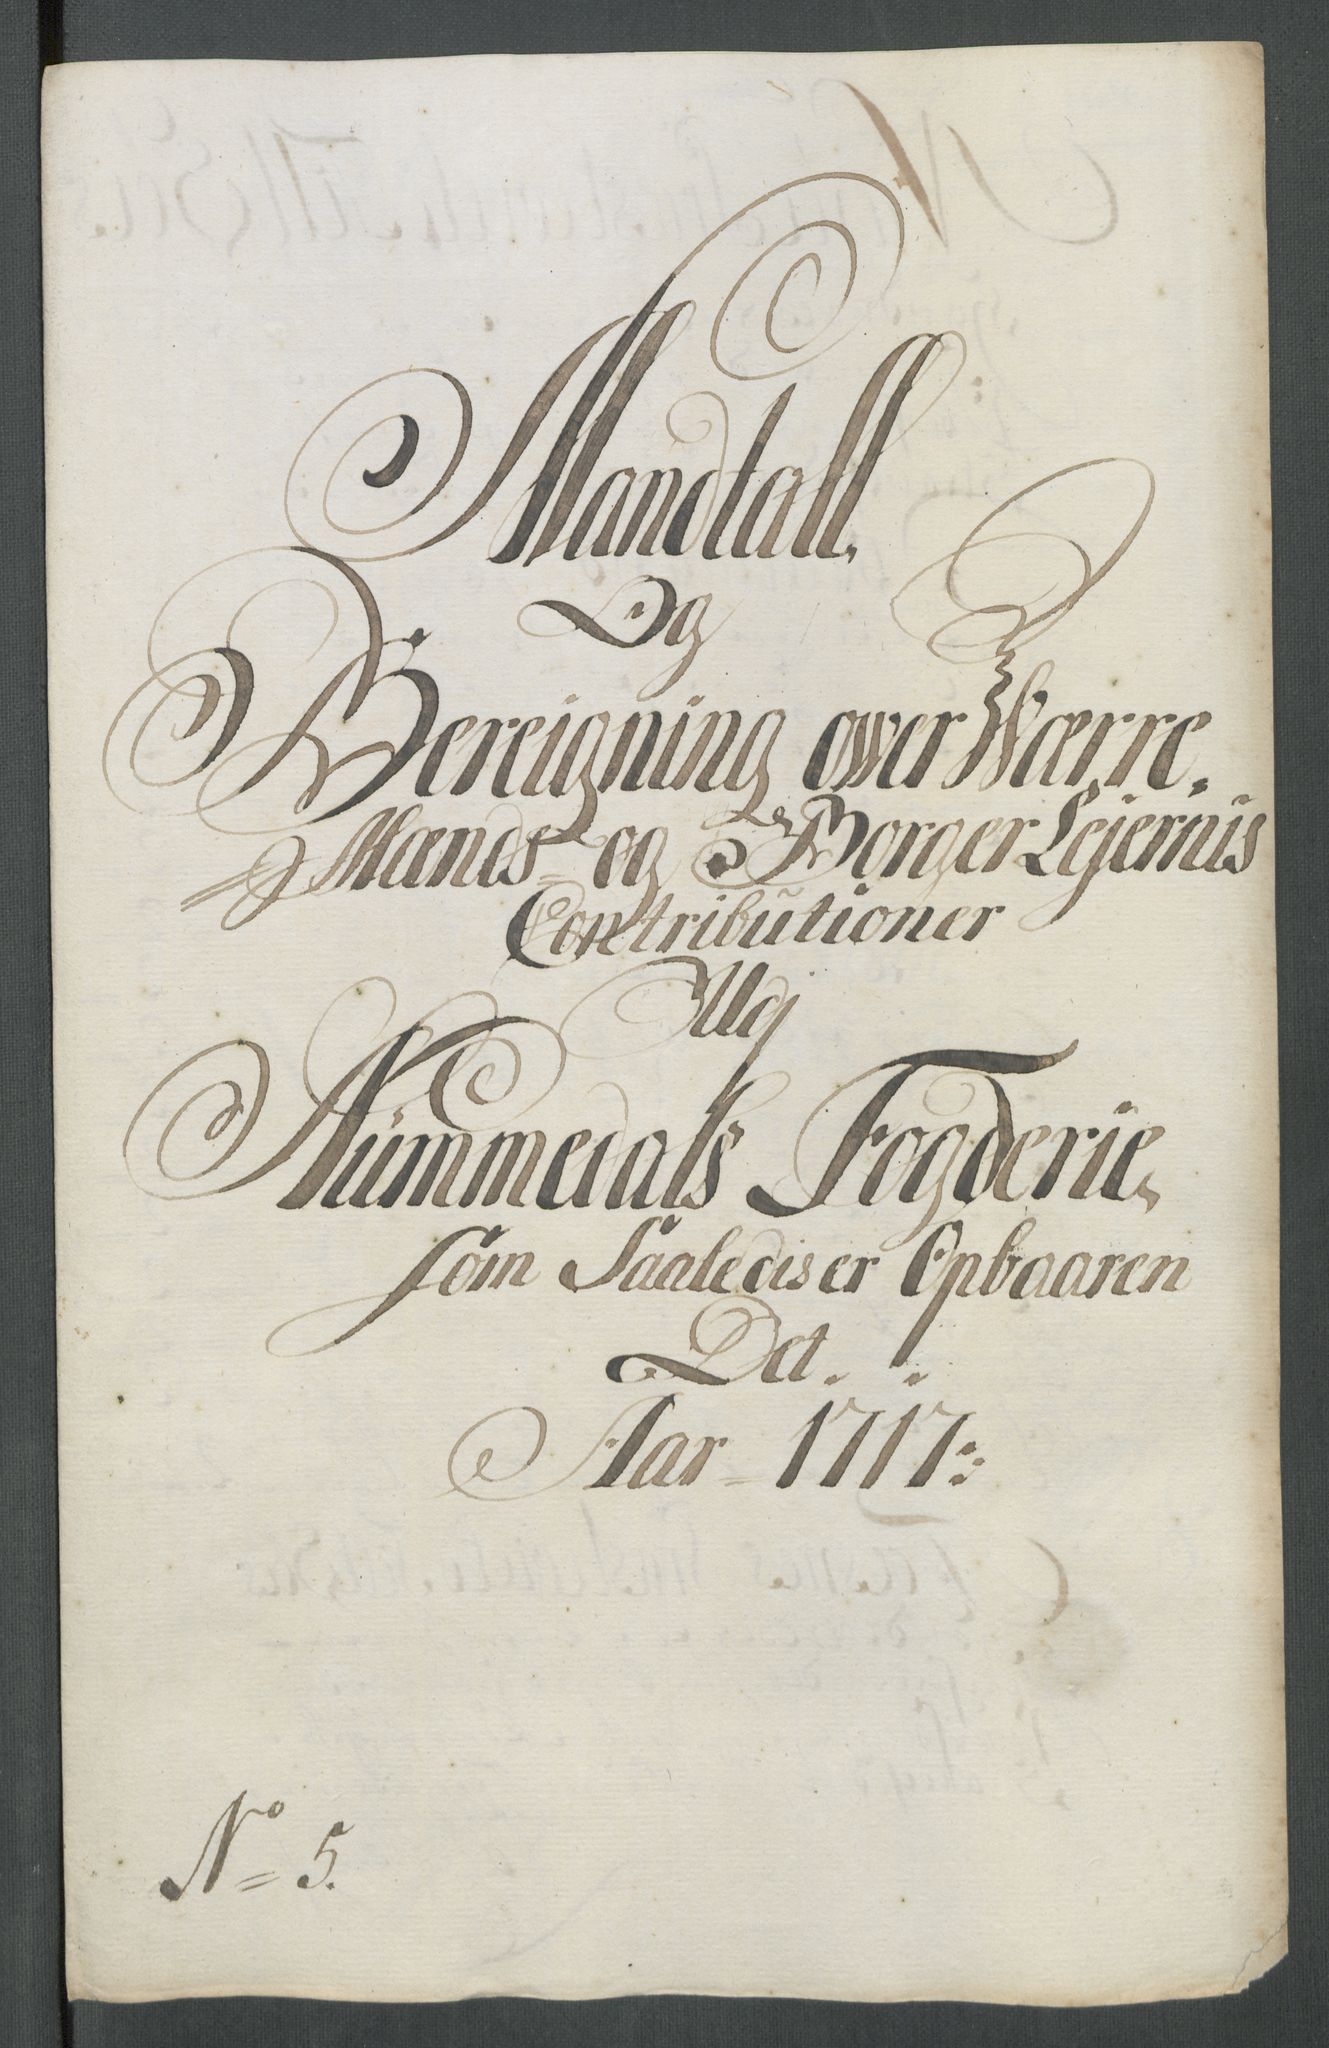 Mandtall,
Og
Bereigning ower Wærre,
Mænds- og Borger Lejernis
Contributioner
Udj
Nümmedals Fogderie,
som Saaledis er Opbaaren
Det.
Aar - 1717:
No= 5.